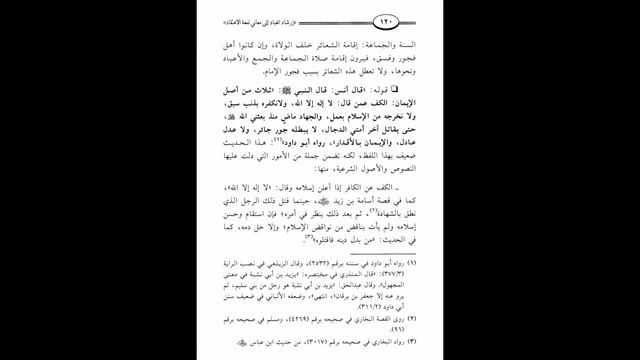 ١٢٠
«إرشاد العباد إلى معاني لمعة الاعتقاد»
السنة والجماعة: إقامة الشعائر خلف الولاة، وإن كانوا أهل
فجور وفسق، فيرون إقامة صلاة الجماعة والجمع والأعياد
ونحوها، ولا تعطل هذه الشعائر بسبب فجور الإمام.
❑ قوله: «قال أنس: قال النبي ﷺ: «ثلاث من أصل
الإيمان: الكف عمن قال: لا إله إلا الله، ولانكفره بذنب سبق،
ولا نخرجه من الإسلام بعمل، والجهاد ماضٍ منذ بعثني الله ﷺ،
حتى يقاتل آخر أمتي الدجال، لا يبطله جور جائر، ولا عدل
عادل، والإيمان بالأقدار»، رواه أبو داود»(١): هذا الحديث
ضعيف بهذا اللفظ، لكنه تضمن جملة من الأمور التي دلت عليها
النصوص والأصول الشرعية، منها:
ـ الكف عن الكافر إذا أعلن إسلامه وقال: «لا إله إلا الله»،
كما في قصة أسامة بن زيد ﷺ، حينما قتل ذلك الرجل الذي
نطق بالشهادة(٢)، ثم بعد ذلك ينظر في أمره؛ فإن استقام وحسن
إسلامه ولم يأت بناقض من نواقض الإسلام؛ وإلا حل دمه، كما
في الحديث: «من بدل دينه فاقتلوه»(٣).
(١) رواه أبو داود في سننه برقم (٢٥٣٢)، وقال الزيلعي في نصب الراية
(٣٧٧/٣): «قال المنذري في مختصره: «يزيد بن أبي نشبة في معنى
المجهول». وقال عبدالحق: «يزيد بن أبي نشبة هو رجل من بني سليم، لم
يرو عنه إلا جعفر بن برقان»، انتهى»، وضعفه الألباني في ضعيف سنن
أبي داود (٣١١/٢).
(٢) روى القصة البخاري في صحيحه برقم (٤٢٦٩)، ومسلم في صحيحه برقم
(٩٦).
(٣) رواه البخاري في صحيحه برقم (٣٠١٧)، من حديث ابن عباس